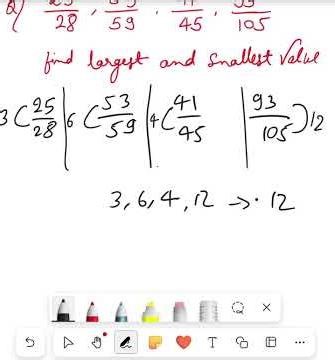 Q) 25/28, 53/59, 41/45, 93/105
find largest and smallest value
3(25/28 | 6(53/59 | 4(41/45 | 93/105)12
3, 6, 4, 12 → 12
T